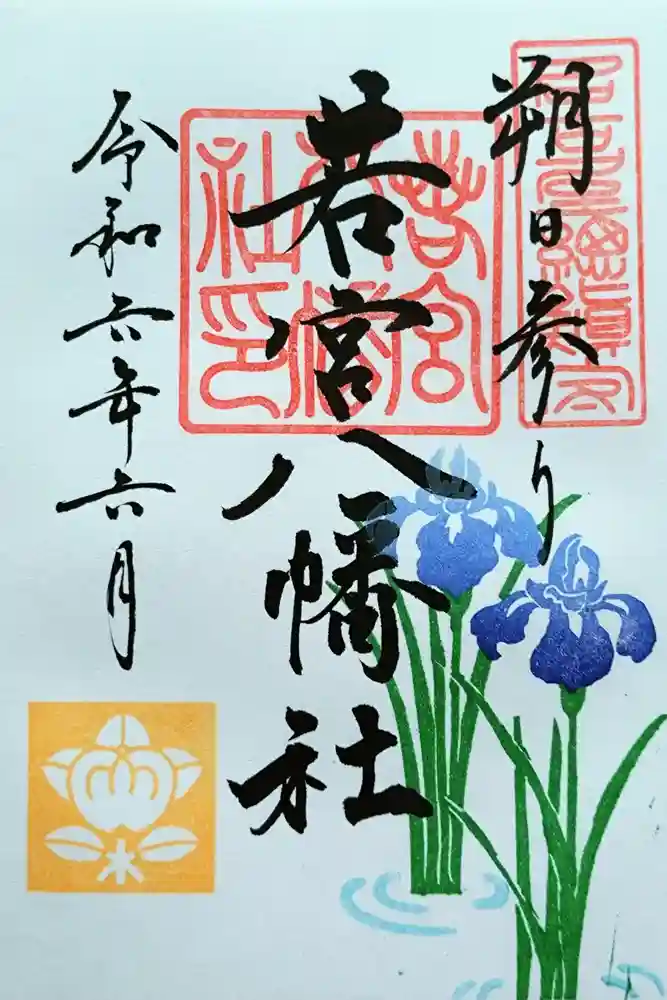 朔日参り
若宮八幡社
若宮八幡社印
令和六年六月